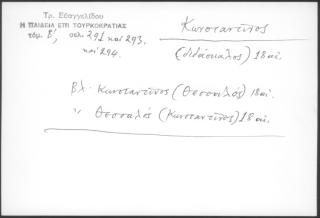 Τρ. Εὐαγγελίδου
Η ΠΑΙΔΕΙΑ ΕΠΙ ΤΟΥΡΚΟΚΡΑΤΙΑΣ
τόμ. Β', σελ. 291 καὶ 293,
καὶ 294.
Κωνσταντῖνος
(διδάσκαλος) 18 αἰ.
Βλ. Κωνσταντῖνος (Θεσσαλός) 18 αἰ.
" Θεσσαλός (Κωνσταντῖνος) 18 αἰ.